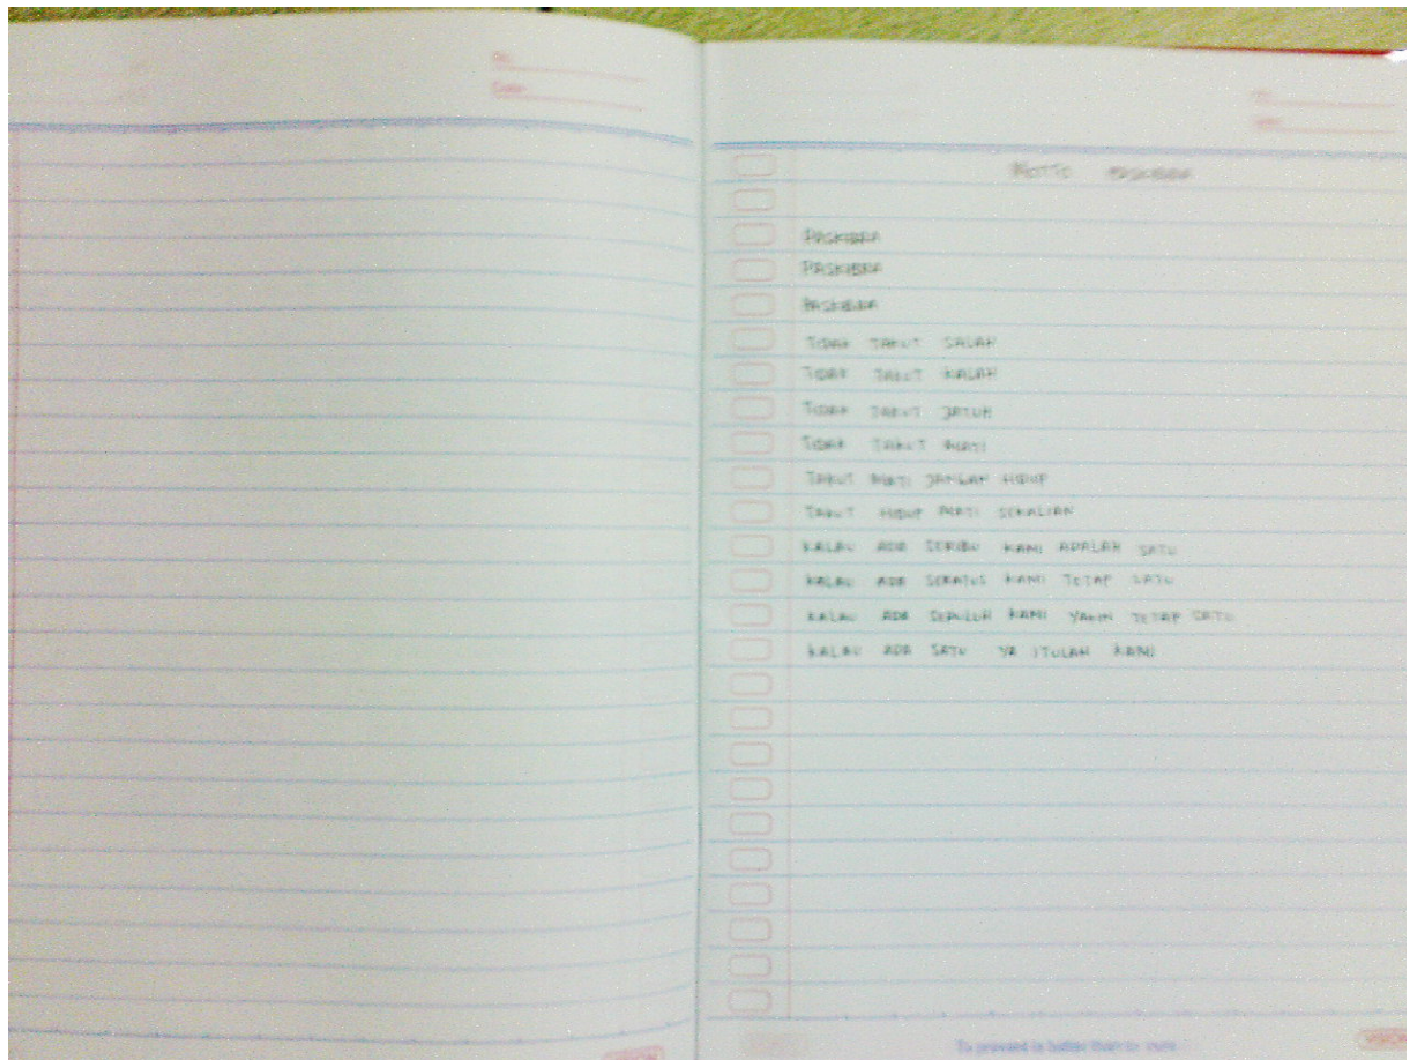 No.
Date
MOTTO PASKIBRA
PASKIBRA
PASKIBRA
PASKIBRA
TIDAK TAKUT SALAH
TIDAK TAKUT KALAH
TIDAK TAKUT JATUH
TIDAK TAKUT MATI
TAKUT MATI JANGAN HIDUP
TAKUT HIDUP MATI SEKALIAN
KALAU ADA SERIBU KAMI ADALAH SATU
KALAU ADA SERATUS KAMI TETAP SATU
KALAU ADA SEPULUH KAMI YAKIN TETAP SATU
KALAU ADA SATU YA ITULAH KAMI
VISION